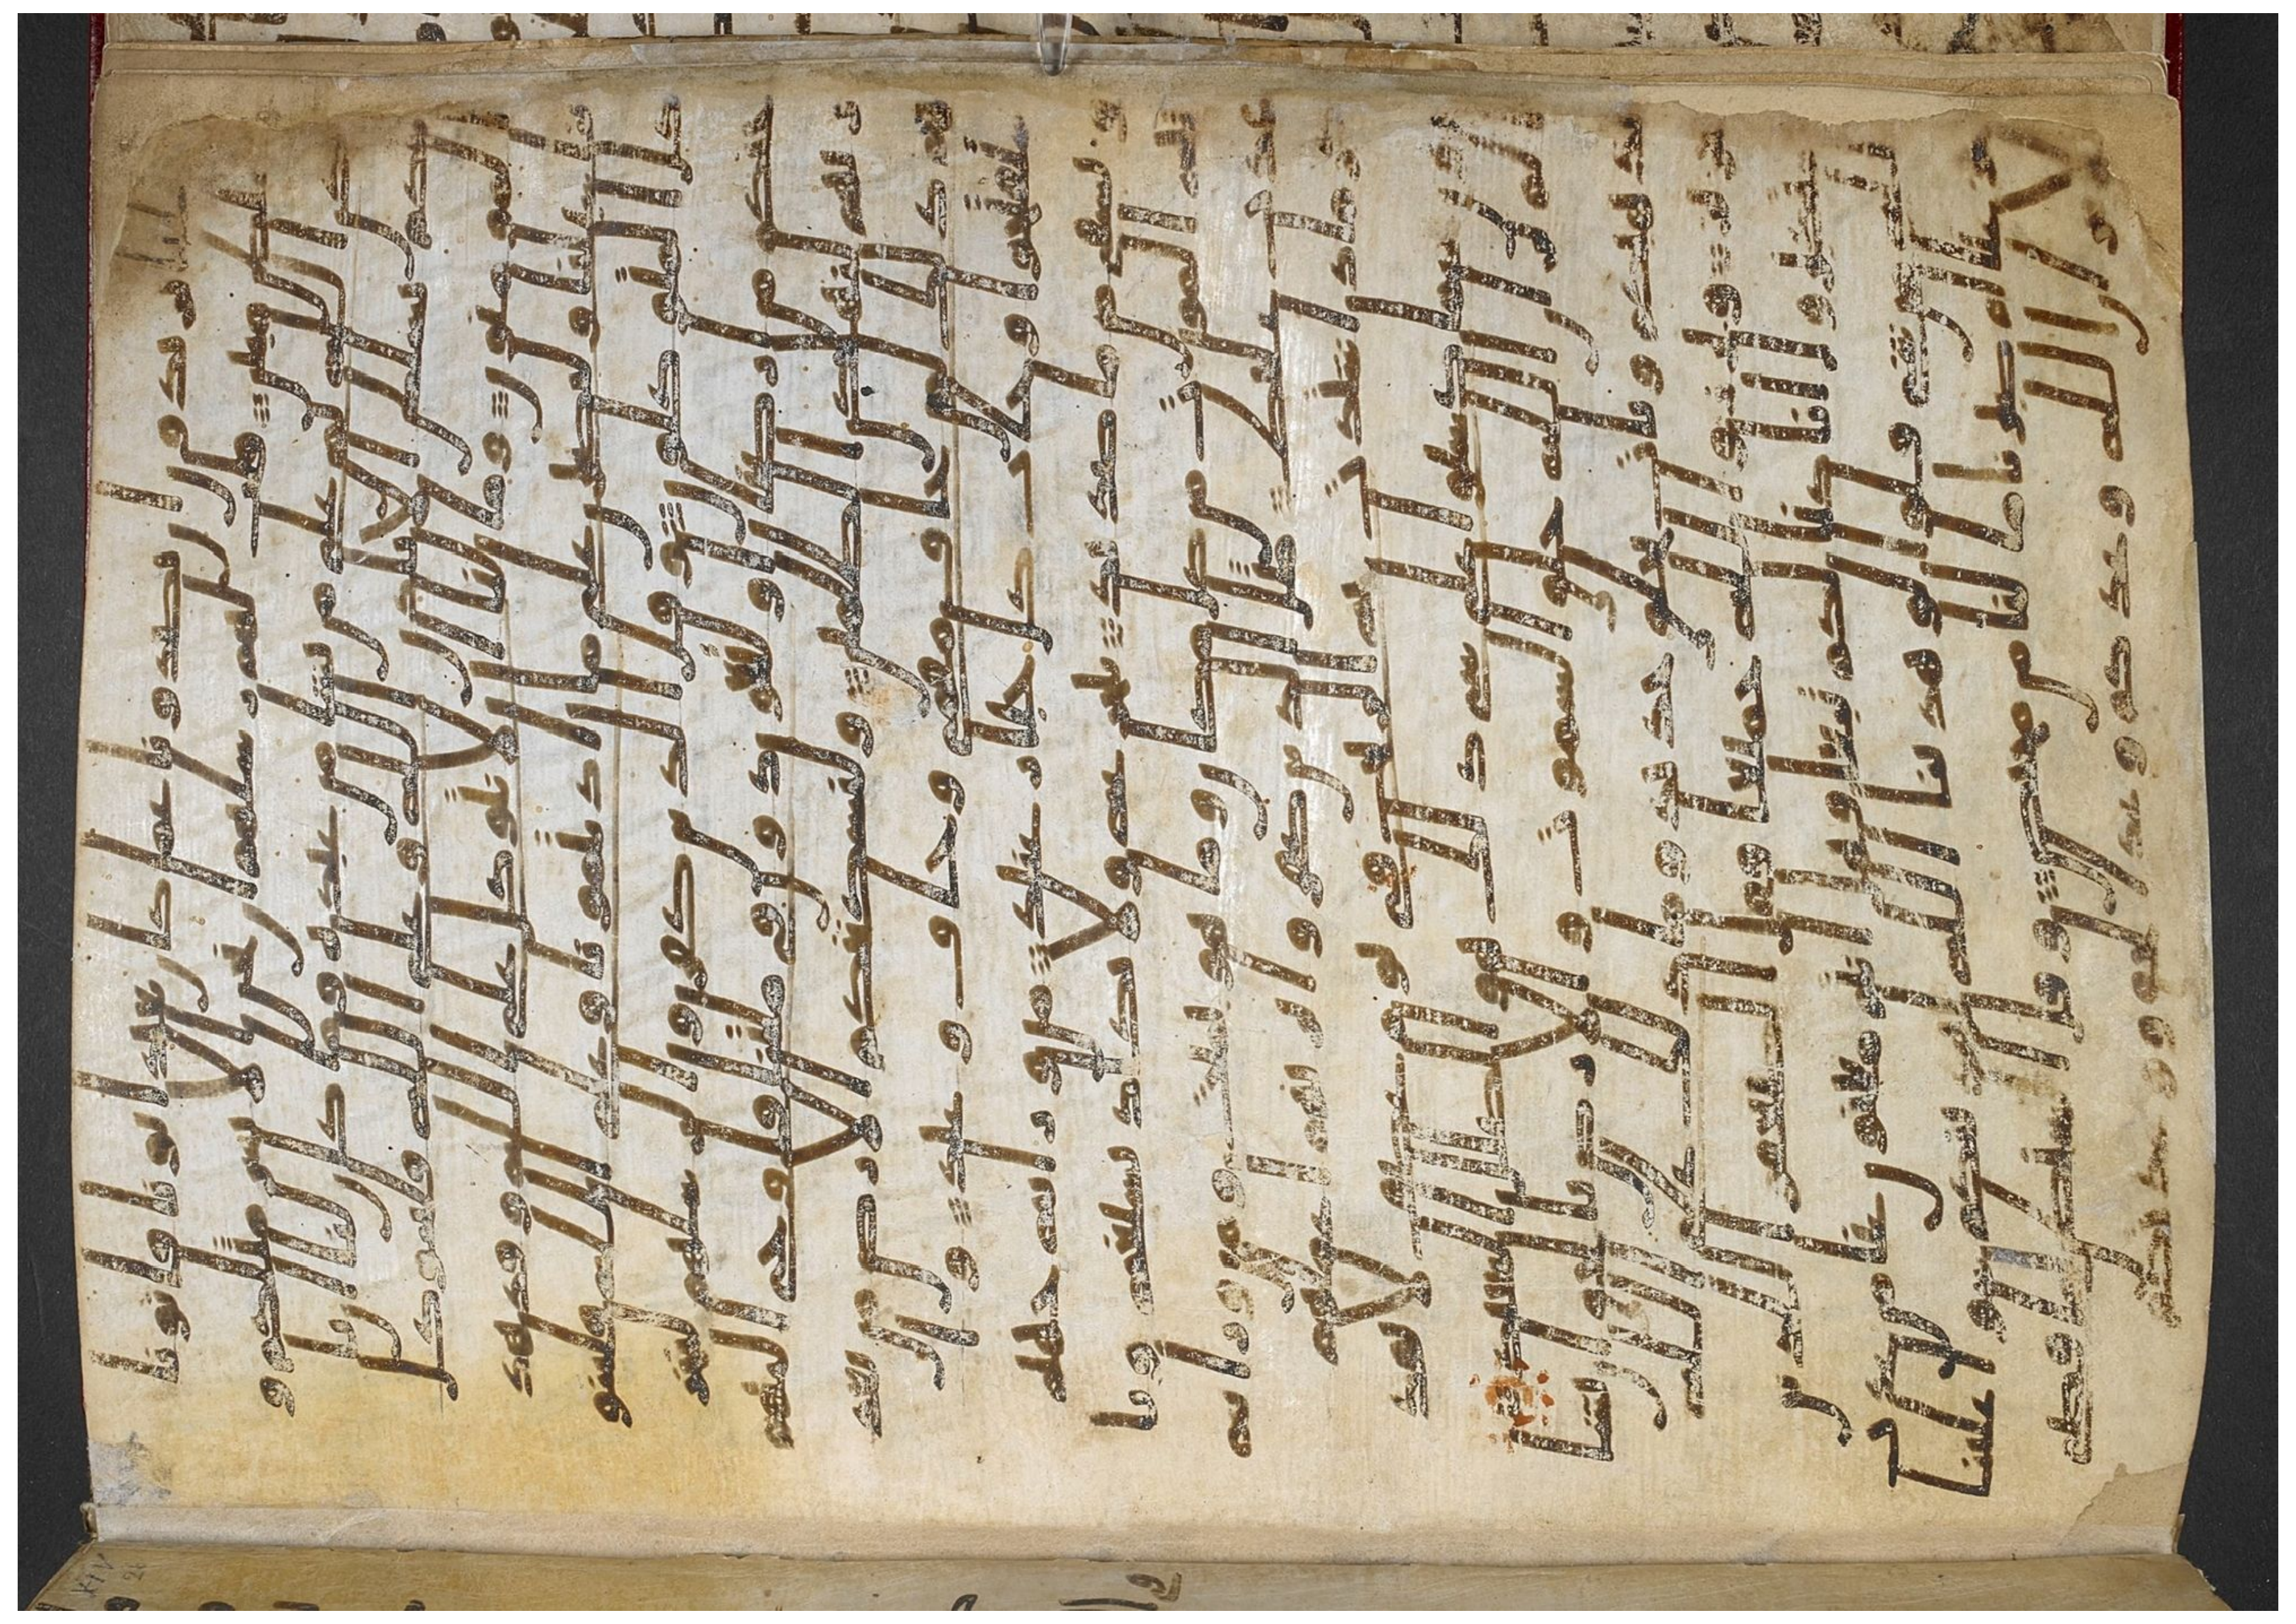 تريدون ان تصدونا عما كان يعبد اباونا فاتونا
بسلطن مبين قالت لهم رسلهم ان نحن الا بشر مثلكم و
لكن الله يمن على من يشا من عباده وما كان لنا ان نا
تيكم بسلطن الا باذن الله وعلى الله فليتوكل
المومنون وما لنا الا نتوكل على الله وقد هد
ينا سبلنا ولنصبرن على ما اذيتمونا وعلى الله فليتو
كل المتوكلون وقال الذين كفروا لرسلهم لنخر
جنكم من ارضنا او لتعودن في ملتنا فاوحى اليهم
ربهم لنهلكن الظلمين ولنسكننكم الارض من بعد
هم ذلك لمن خاف مقامي وخاف وعيد واستفتحوا
وخاب كل جبار عنيد من ورايه جهنم
ويسقى من ما صديد يتجرعه ولا يكاد يسيغه ويا
تيه الموت من كل مكان وما هو بميت ومن ورايه
عذاب غليظ مثل الذين كفروا بربهم اعملهم
كرماد اشتدت به الريح في يوم عاصف لا يقدرون مما
كسبوا على شى ذلك هو الضلل البعيد الم تر
ان الله خلق السموت والارض بالحق ان يشا
يذهبكم ويات بخلق جديد وما ذلك على الله
بعزيز وبرزوا لله جميعا فقال الضعفوا للذين
استكبروا انا كنا لكم تبعا فهل انتم مغنون عنا من
عذاب الله من شى قالوا لو هدينا الله لهدينكم سوا
علينا اجزعنا ام صبرنا ما لنا من محيص وقال الشيطن
لما قضى الامر ان الله وعدكم وعد